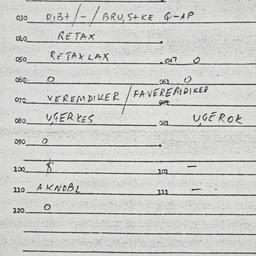 030 RIBT/-/BRUSTKE Q-AP
040 RETAX
050 RETAX LAX 051 0
060 0 061 0
070 VEREMDIKER/FAVEREMDIKER
080 VGERKES 081 VGEROK
090 0
100 101 -
110 AKNOBL 111 -
120 0